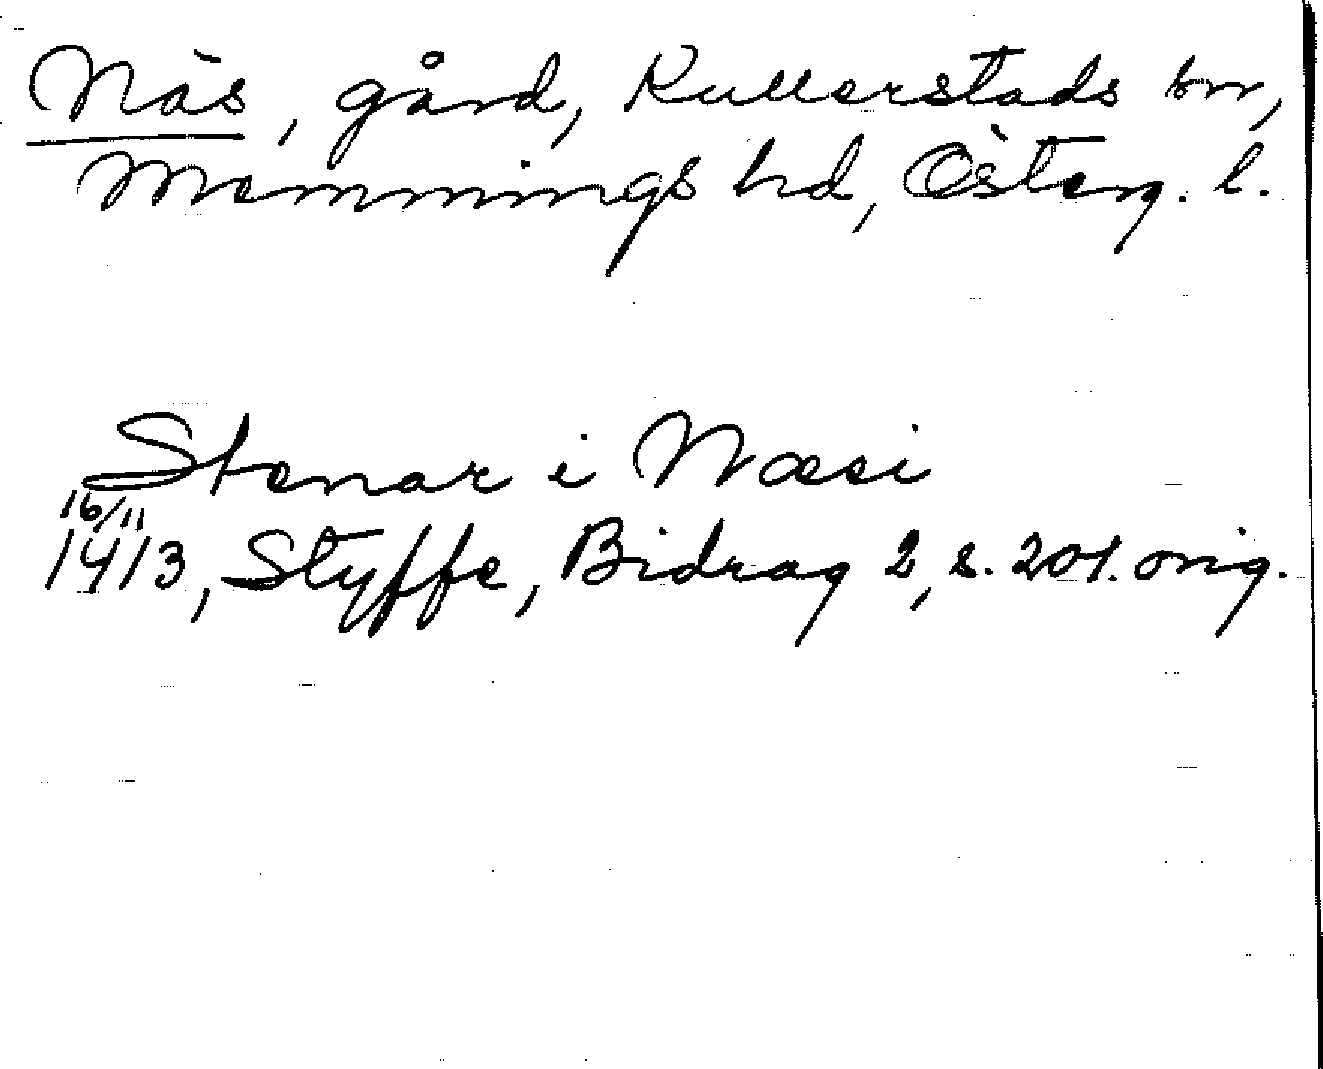 Näs, gård, Kullerstads sn,
Memmings hd, Österg. l.
Stenar i Næsi
16/11
1413, Styffe, Bidrag 2, s. 201. orig.